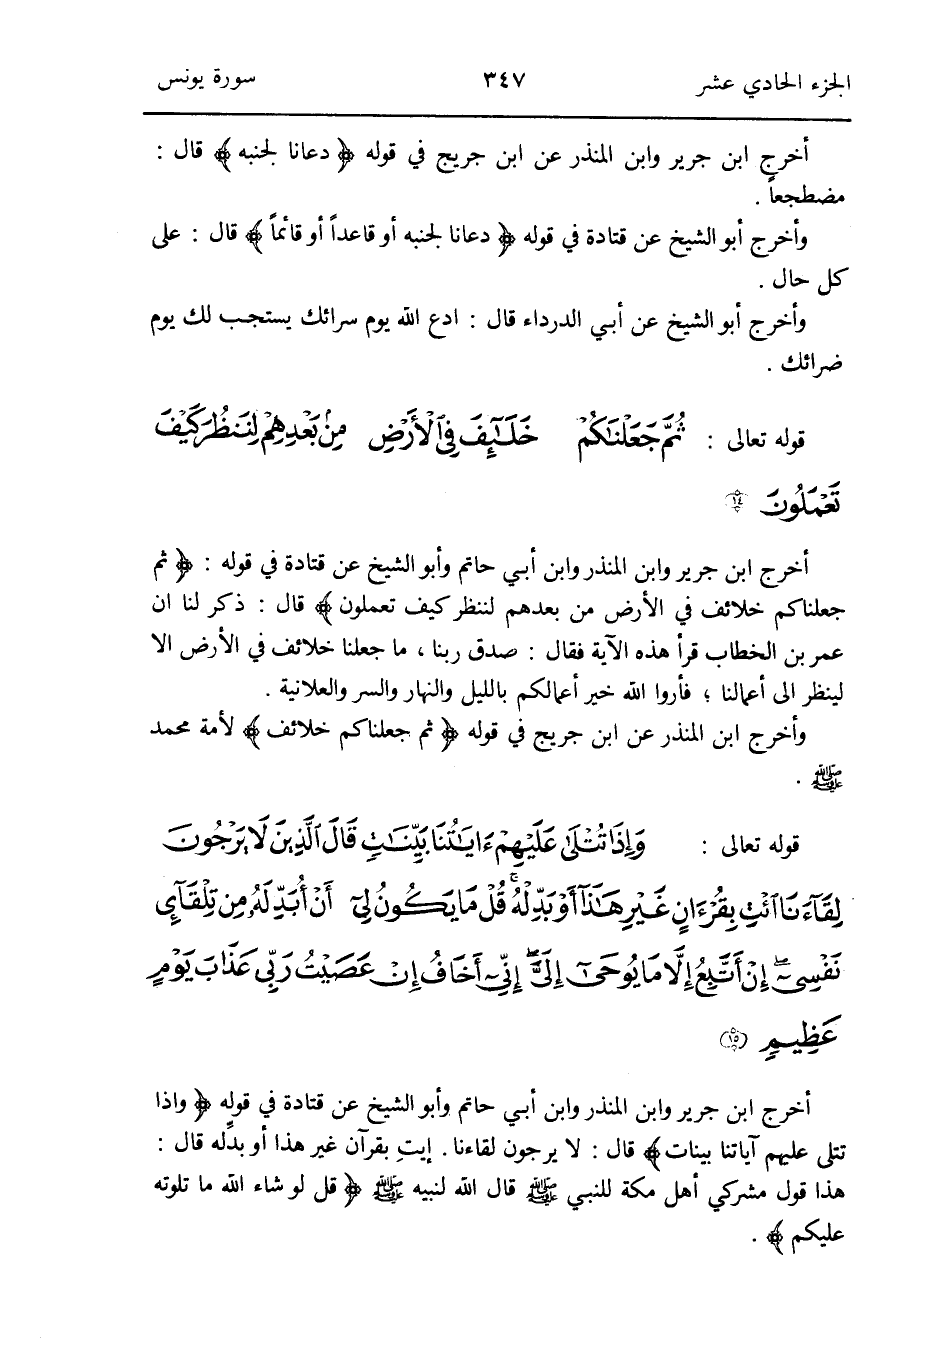 الجزء الحادي عشر ٣٤٧ سورة يونس
أخرج ابن جرير وابن المنذر عن ابن جريج في قوله ﴿ دعانا لجنبه ﴾ قال :
مضطجعاً .
وأخرج أبو الشيخ عن قتادة في قوله ﴿ دعانا لجنبه أو قاعداً أو قائماً ﴾ قال : على
كل حال .
وأخرج أبو الشيخ عن أبي الدرداء قال : ادع الله يوم سرائك يستجب لك يوم
ضرائك .
قوله تعالى : ثُمَّ جَعَلْنَٰكُمْ خَلَٰٓئِفَ فِى ٱلْأَرْضِ مِنۢ بَعْدِهِمْ لِنَنظُرَ كَيْفَ
تَعْمَلُونَ ١٤
أخرج ابن جرير وابن المنذر وابن أبي حاتم وأبو الشيخ عن قتادة في قوله : ﴿ ثم
جعلناكم خلائف في الأرض من بعدهم لننظر كيف تعملون ﴾ قال : ذكر لنا ان
عمر بن الخطاب قرأ هذه الآية فقال : صدق ربنا ، ما جعلنا خلائف في الأرض الا
لينظر الى أعمالنا ؛ فأروا الله خير أعمالكم بالليل والنهار والسر والعلانية .
وأخرج ابن المنذر عن ابن جريج في قوله ﴿ ثم جعلناكم خلائف ﴾ لأمة محمد
ﷺ .
قوله تعالى : وَإِذَا تُتْلَىٰ عَلَيْهِمْ ءَايَاتُنَا بَيِّنَٰتٍ قَالَ ٱلَّذِينَ لَا يَرْجُونَ
لِقَآءَنَا ٱئْتِ بِقُرْءَانٍ غَيْرِ هَٰذَآ أَوْ بَدِّلْهُ ۚ قُلْ مَا يَكُونُ لِىٓ أَنْ أُبَدِّلَهُۥ مِن تِلْقَآئِ
نَفْسِىٓ ۖ إِنْ أَتَّبِعُ إِلَّا مَا يُوحَىٰٓ إِلَىَّ ۖ إِنِّىٓ أَخَافُ إِنْ عَصَيْتُ رَبِّى عَذَابَ يَوْمٍ
عَظِيمٍ ١٥
أخرج ابن جرير وابن المنذر وابن أبي حاتم وأبو الشيخ عن قتادة في قوله ﴿ واذا
تتلى عليهم آياتنا بينات ﴾ قال : لا يرجون لقاءنا . إيتِ بقرآن غير هذا أو بدله قال :
هذا قول مشركي أهل مكة للنبي ﷺ قال الله لنبيه ﷺ ﴿ قل لو شاء الله ما تلوته
عليكم ﴾ .